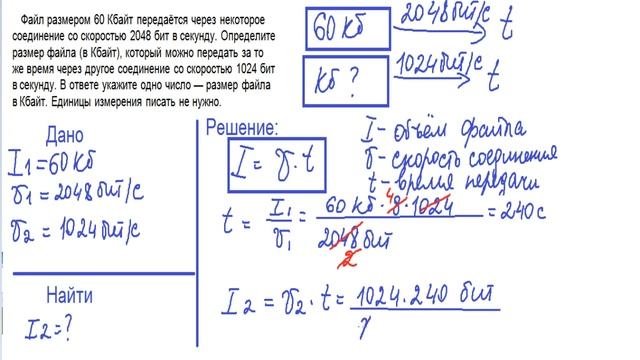 Файл размером 60 Кбайт передаётся через некоторое
соединение со скоростью 2048 бит в секунду. Определите
размер файла (в Кбайт), который можно передать за то
же время через другое соединение со скоростью 1024 бит
в секунду. В ответе укажите одно число — размер файла
в Кбайт. Единицы измерения писать не нужно.
60 Кб 2048 бит/с t
Кб ? 1024 бит/с t
Дано
I1 = 60 Кб
υ1 = 2048 бит/с
υ2 = 1024 бит/с
Найти
I2 = ?
Решение:
I = υ · t
I - объём файла
υ - скорость соединения
t - время передачи
t = I1 / υ1 = 60 Кб · 8 · 1024 / 2048 бит = 240 с
4
2
I2 = υ2 · t = 1024 · 240 бит